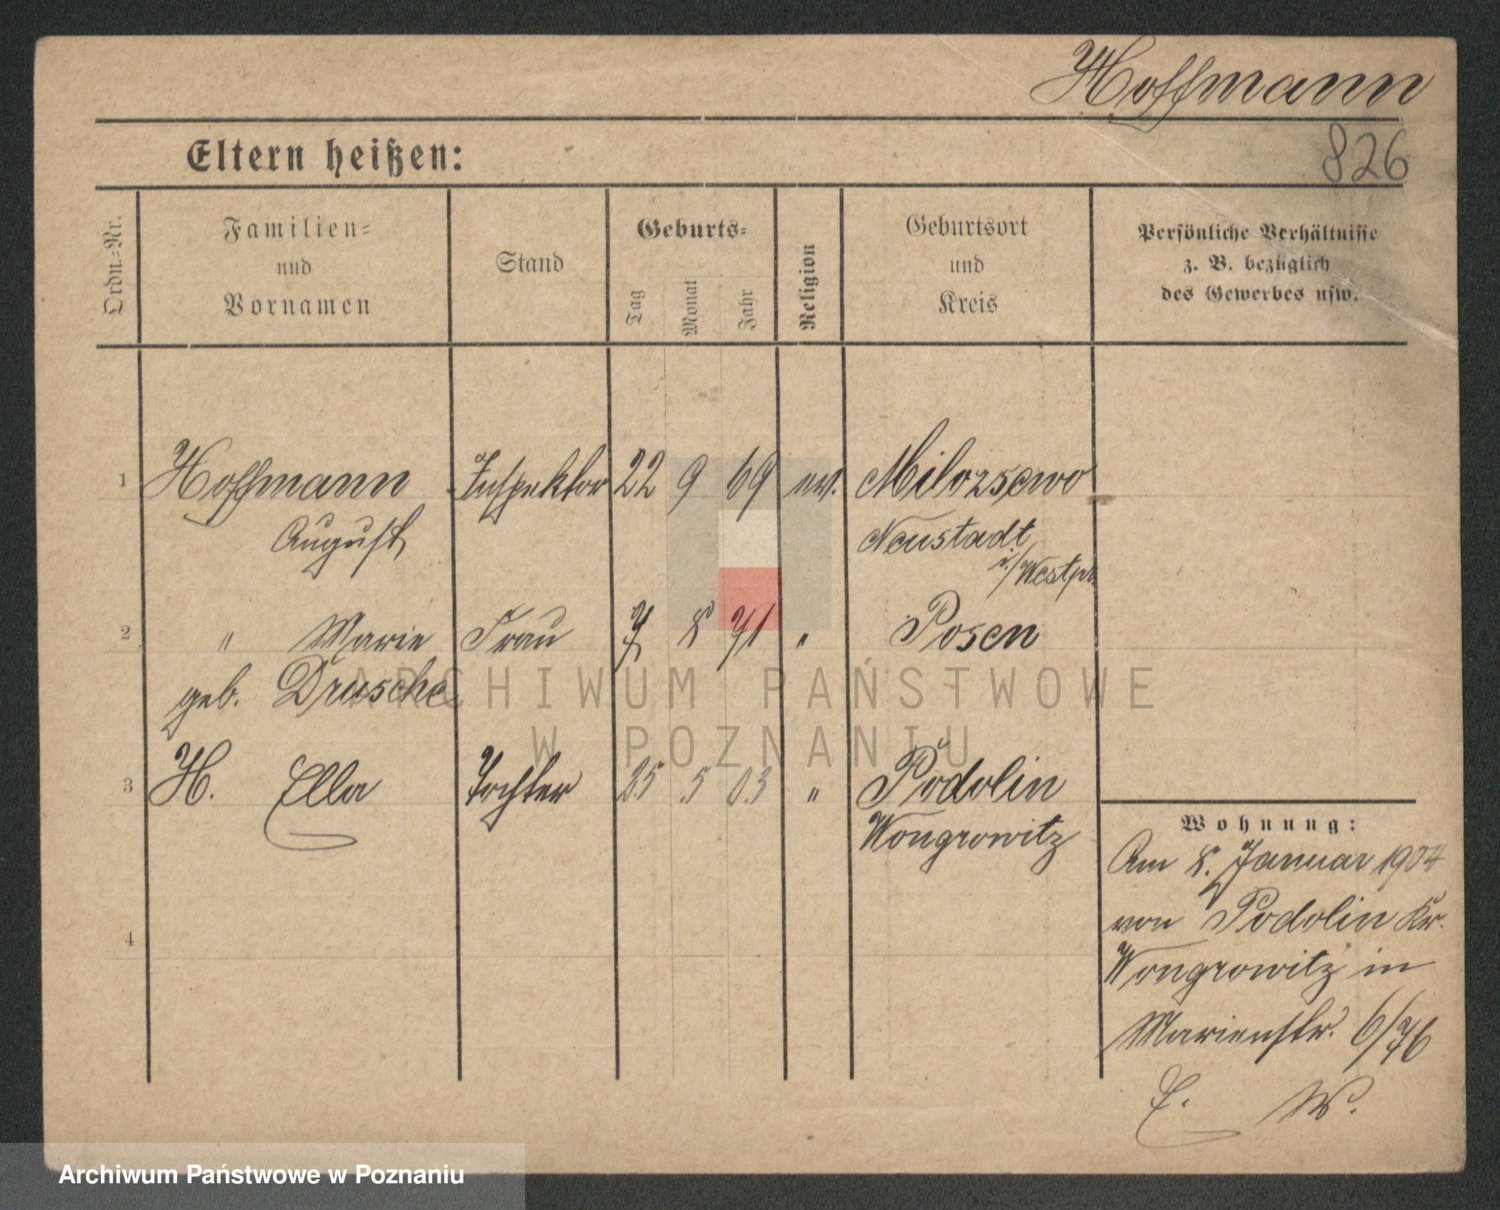 Hoffmann
826
Eltern heißen:
Ordn.-Nr.
Familien-
und
Vornamen
Stand
Geburts-
Tag
Monat
Jahr
Religion
Geburtsort
und
Kreis
Persönliche Verhältnisse
z. B. bezüglich
des Gewerbes usw.
1 Hoffmann Inspektor 22 9 69 ev. Milozsewo
August Neustadt
i./Westpr.
2 " Marie Frau 7 8 71 " Posen
geb. Drusche
3 H. Ella Tochter 25 5 03 " Podolin
Wongrowitz
4
Wohnung:
Am 8. Januar 1904
von Podolin Kr.
Wongrowitz in
Marienstr. 6/
E. W.
ARCHIWUM PAŃSTWOWE
W POZNANIU
Archiwum Państwowe w Poznaniu